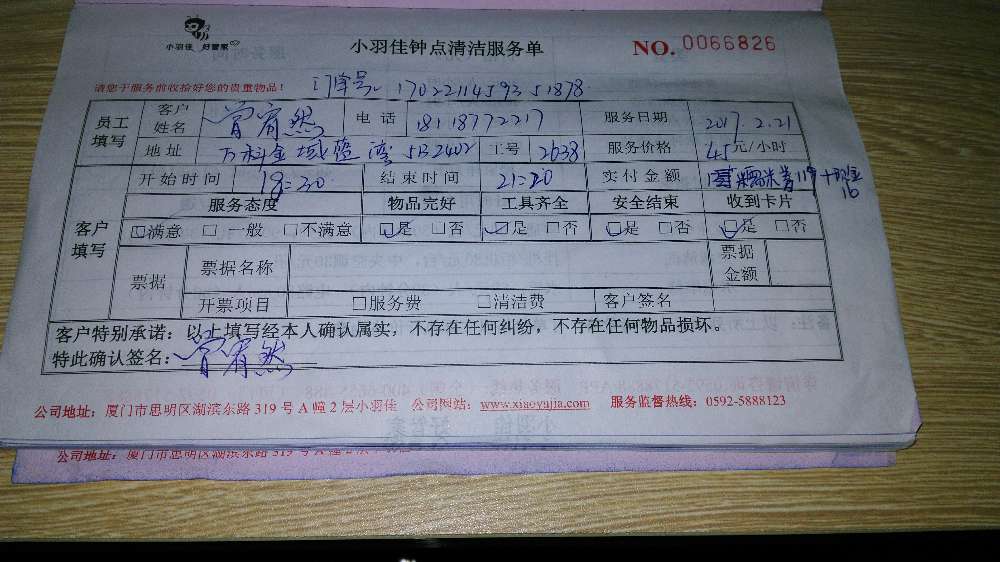 小羽佳 好管家
小羽佳钟点清洁服务单
NO. 0066826
请您于服务前收拾好您的贵重物品!
订单号 170221145935 1878
员工填写 客户姓名 曾宥然 电话 18118772217 服务日期 2017.2.21
地址 万科金域蓝湾 5B2402 工号 2638 服务价格 45元/小时
开始时间 18:20 结束时间 21:20 实付金额
客户填写 服务态度 物品完好 工具齐全 安全结束 收到卡片
☑满意 □一般 □不满意 ☑是 □否 ☑是 □否 ☑是 □否 ☑是 □否
票据 票据名称 票据金额
开票项目 □服务费 □清洁费 客户签名
客户特别承诺：以上填写经本人确认属实，不存在任何纠纷，不存在任何物品损坏。
特此确认签名：曾宥然
公司地址：厦门市思明区湖滨东路 319 号 A 幢 2 层小羽佳 公司网站：www.xiaoyujia.com 服务监督热线：0592-5888123
公司地址：厦门市思明区湖滨东路 319 号 A 幢 2 层